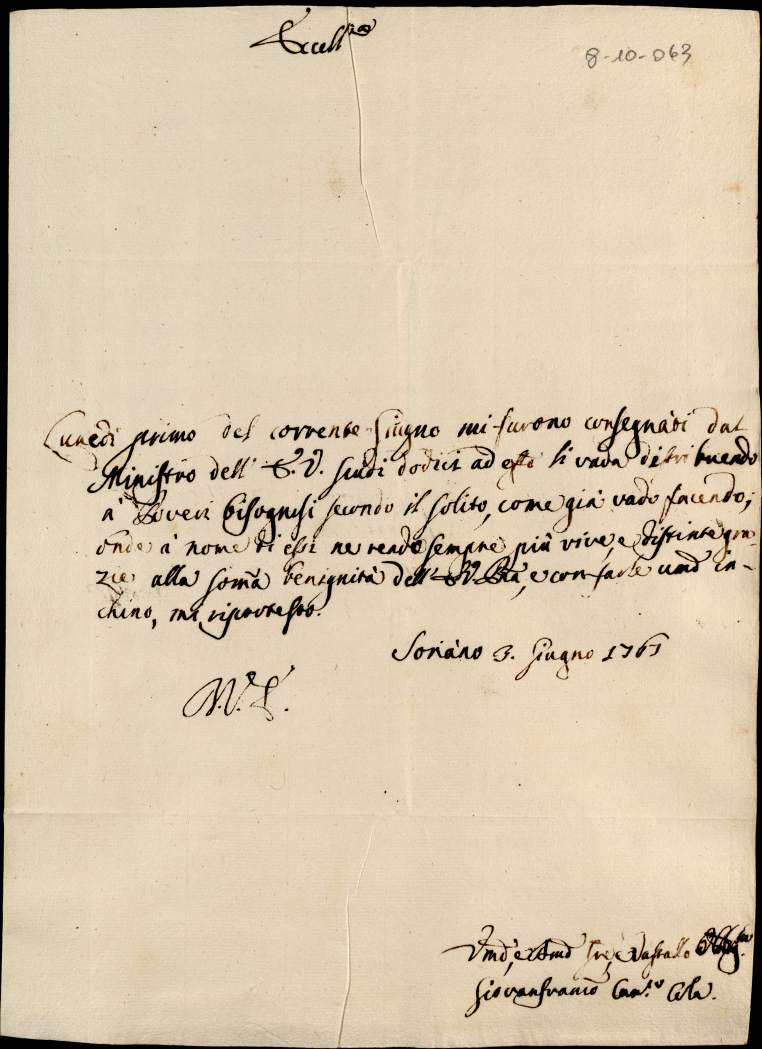 Eccell.za
8-10-063
Lunedì primo del corrente Giugno mi furono consegnati dal
Ministro dell' E. V. scudi dodici ad effo li vada distribuendo
a' Poveri bisognosi secondo il solito, come già vado facendo;
onde à nome di essi ne rendo sempre più vive, e distinte gra-
zie alla somã benignità dell' E. V. e con farle umõ in-
chino, mi
Soriano 3. Giugno 1761
Umõ, e Servẽ, e Vassallo Obblig.mo
Giovanfranco Can.co Cola.